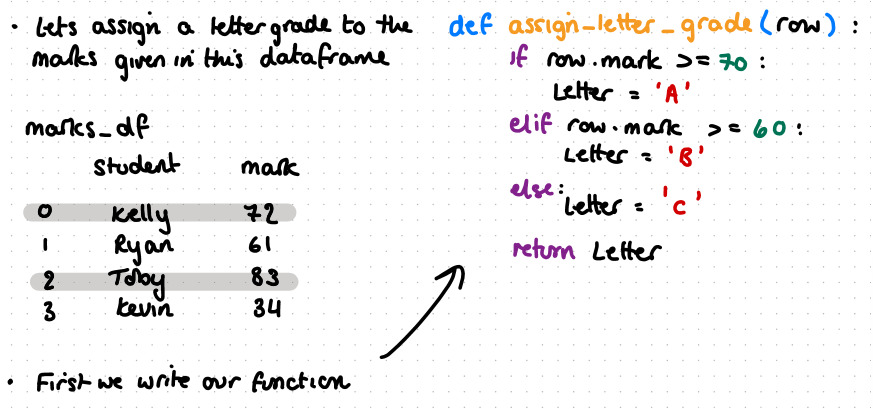 • Lets assign a letter grade to the
marks given in this dataframe
marks_df
student mark
0 Kelly 72
1 Ryan 61
2 Toby 83
3 Kevin 34
• First we write our function
def assign_letter_grade(row):
if row.mark >= 70:
Letter = 'A'
elif row.mark >= 60:
Letter = 'B'
else:
Letter = 'C'
return Letter